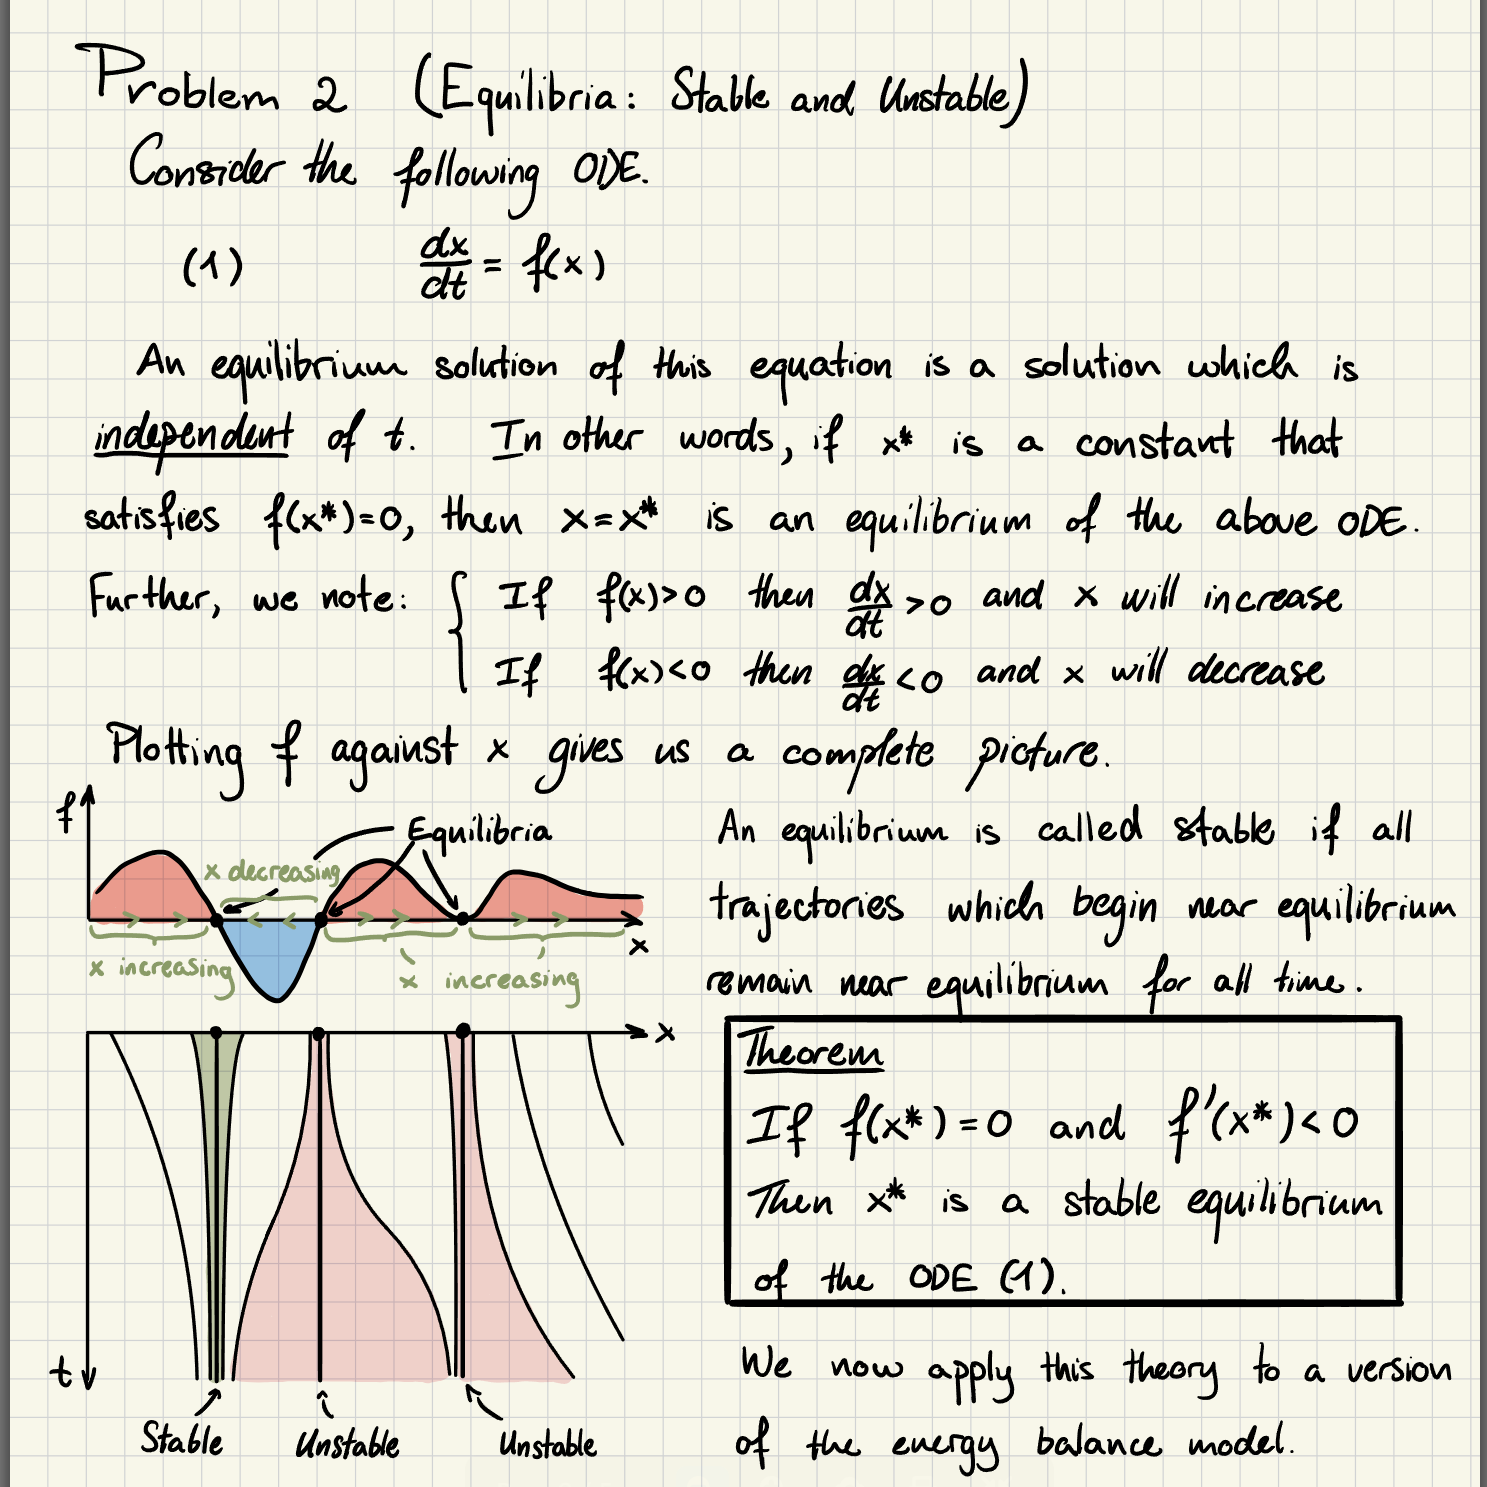 Problem 2 (Equilibria: Stable and Unstable)
Consider the following ODE.
(1) dx/dt = f(x)
An equilibrium solution of this equation is a solution which is
independent of t. In other words, if x* is a constant that
satisfies f(x*)=0, then x=x* is an equilibrium of the above ODE.
Further, we note: { If f(x)>0 then dx/dt >0 and x will increase
If f(x)<0 then dx/dt <0 and x will decrease
Plotting f against x gives us a complete picture.
f
Equilibria
x decreasing
x
x increasing
x increasing
x
t
Stable
Unstable
Unstable
An equilibrium is called stable if all
trajectories which begin near equilibrium
remain near equilibrium for all time.
Theorem
If f(x*)=0 and f'(x*)<0
Then x* is a stable equilibrium
of the ODE (1).
We now apply this theory to a version
of the energy balance model.